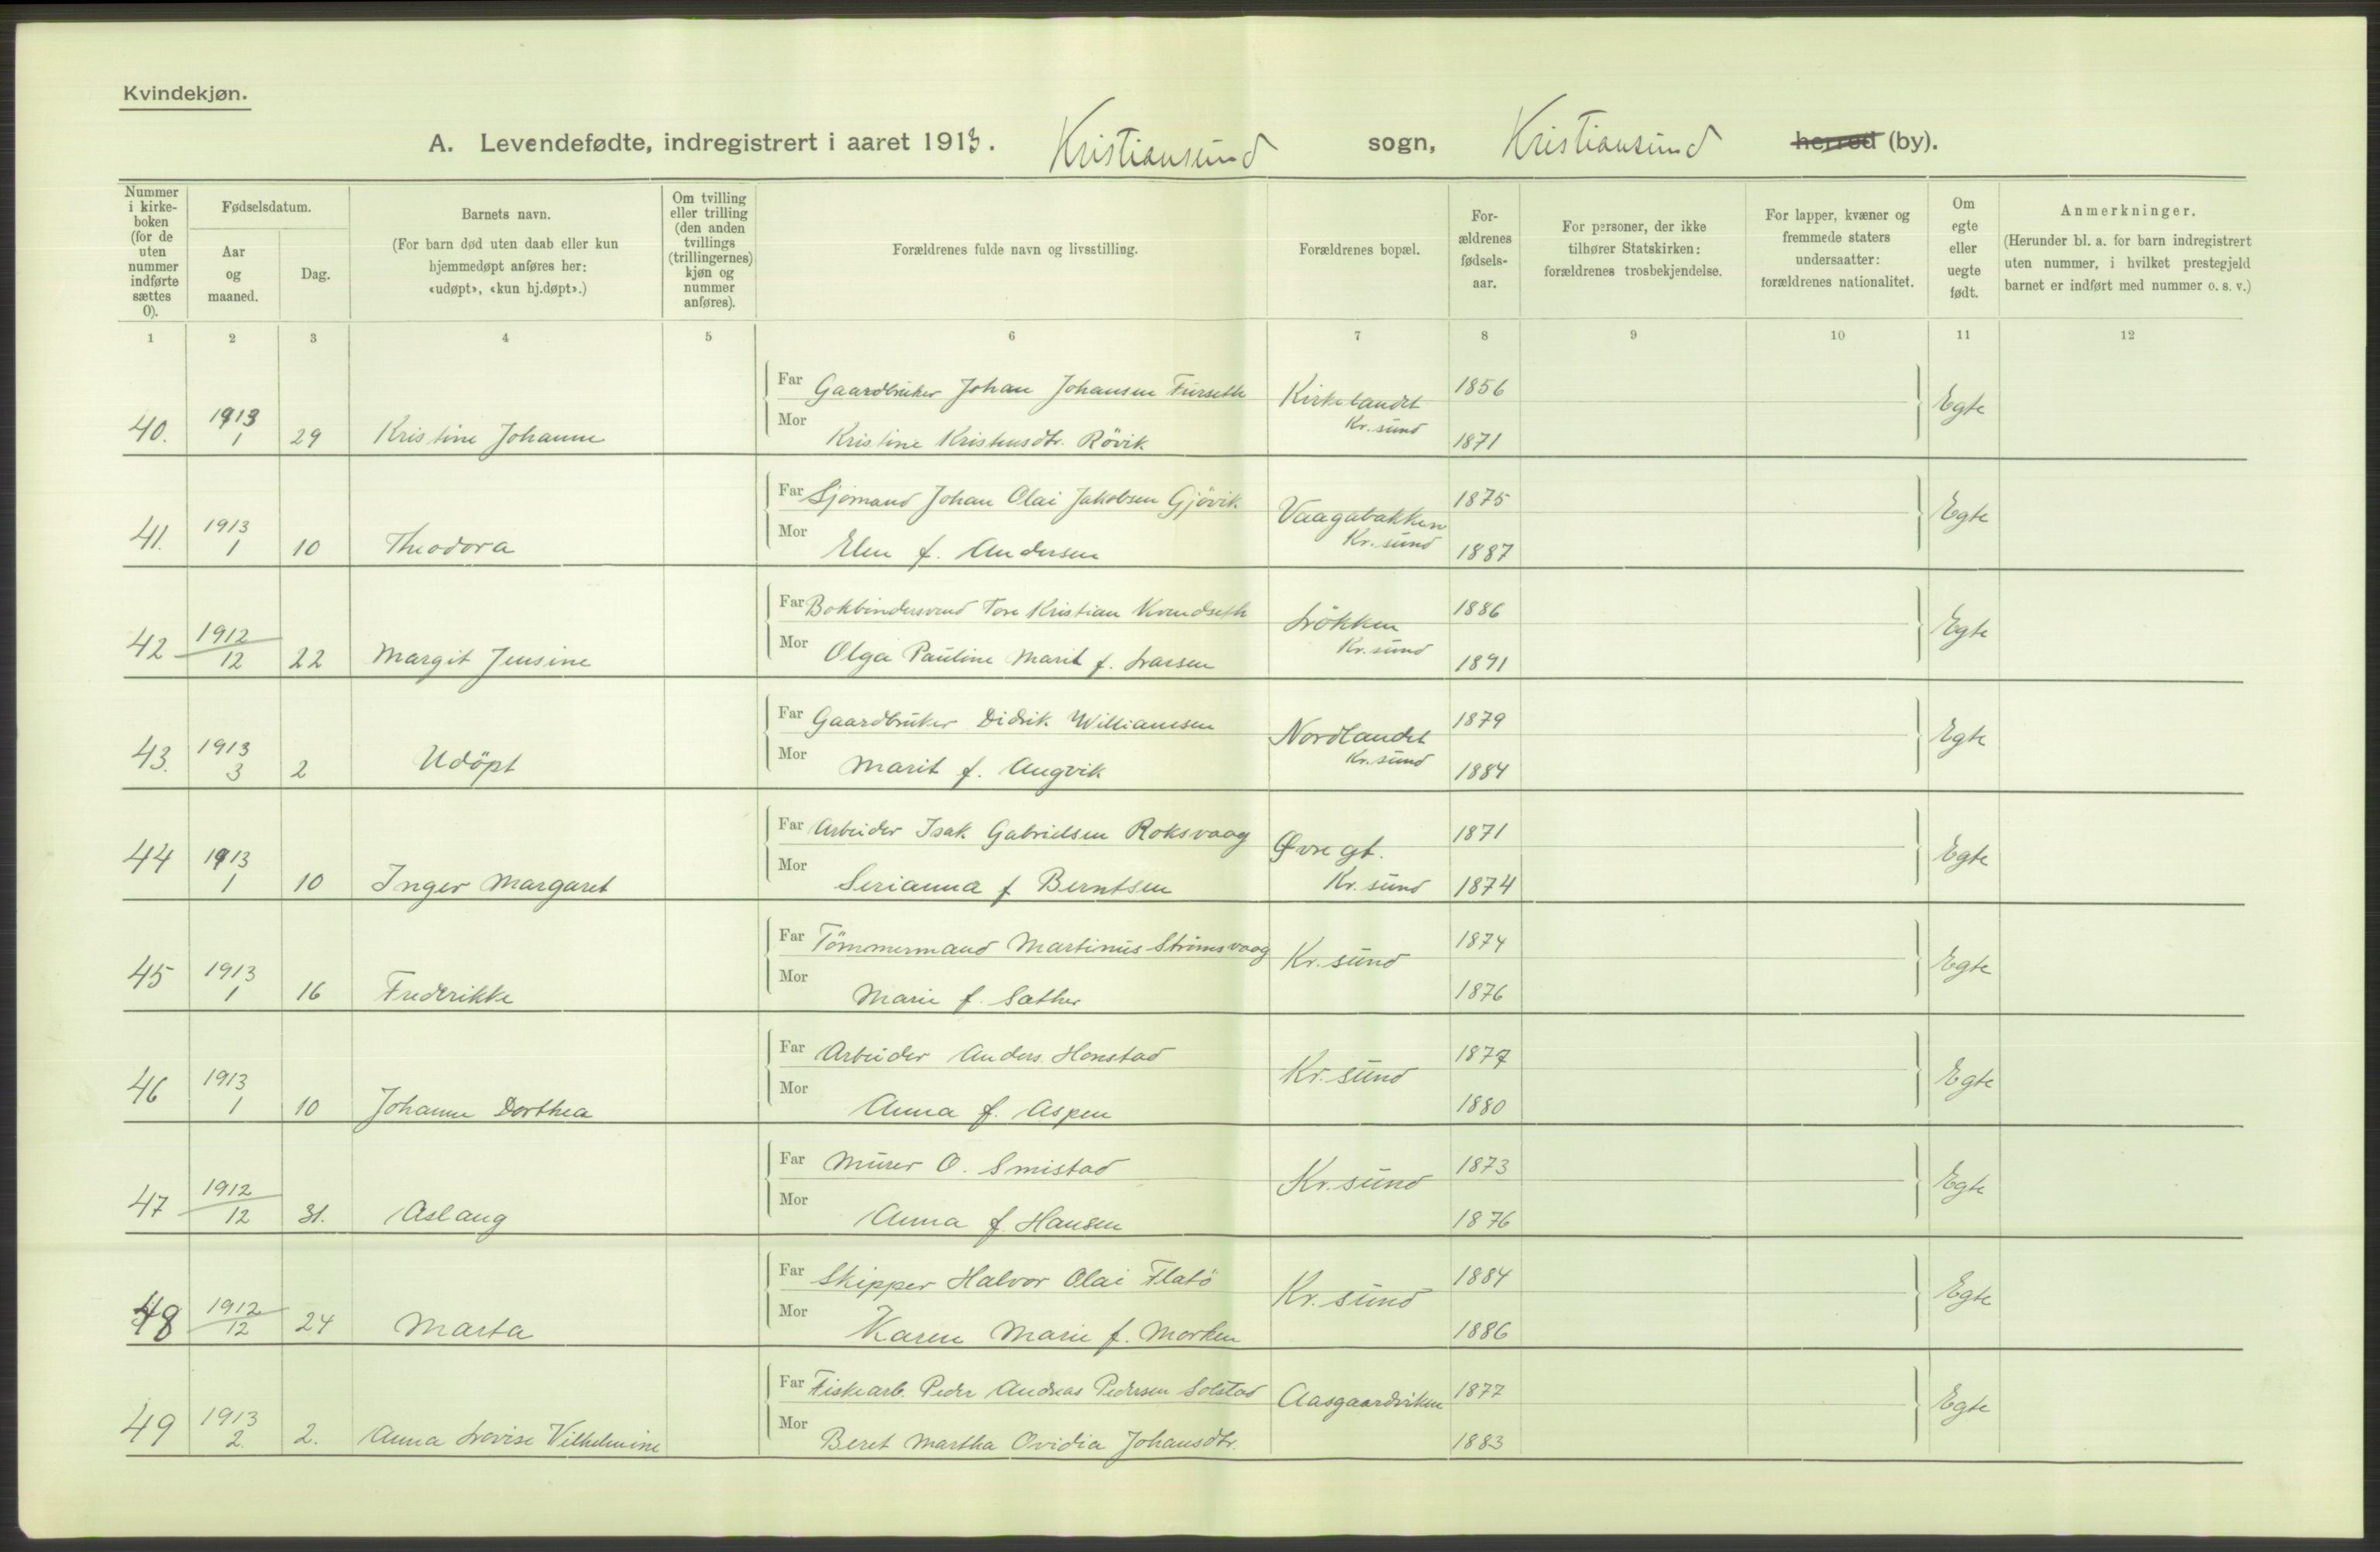 Kvindekjøn.
A. Levendefødte, indregistrert i aaret 1913. Kristiansund sogn, Kristiansund herred (by).
Nummer i kirke-boken (for de uten nummer indførte sættes 0).
Fødselsdatum.
Aar og maaned.
Dag.
Barnets navn.
(For barn død uten daab eller kun hjemmedøpt anføres her: «udøpt», «kun hj.døpt».)
Om tvilling eller trilling (den anden tvillings (trillingernes) kjøn og nummer anføres).
Forældrenes fulde navn og livsstilling.
Forældrenes bopæl.
For-ældrenes fødsels-aar.
For personer, der ikke tilhører Statskirken: forældrenes trosbekjendelse.
For lapper, kvæner og fremmede staters undersaatter: forældrenes nationalitet.
Om egte eller uegte født.
Anmerkninger.
(Herunder bl. a. for barn indregistrert uten nummer, i hvilket prestegjeld barnet er indført med nummer o. s. v.)
1 2 3 4 5 6 7 8 9 10 11 12
40. 1913 1 29 Kristine Johanne
Far Gaardbruker Johan Johansen Furseth Kirkelandet Kr.sund 1856 Egte
Mor Kristine Kristensdtr. Rövik 1871
41. 1913 1 10 Theodora
Far Sjømand Johan Olai Jakobsen Gjövik Vaagabakken Kr.sund 1875 Egte
Mor Elen f. Andersen 1887
42 1912 12 22 Margit Jensine
Far Bokbindersvend Tore Kristian Kvendseth Lökken Kr.sund 1886 Egte
Mor Olga Pauline Marit f. Larsen 1891
43. 1913 3 2 Udöpt
Far Gaardbruker Didrik Williamsen Nordlandet Kr.sund 1879 Egte
Mor Marit f. Angvik 1884
44 1913 1 10 Inger Margaret
Far Arbeider Isak Gabrielsen Roksvaag Øvre gt. Kr.sund 1871 Egte
Mor Serianna f Berntsen 1874
45 1913 1 16 Frederikke
Far Tömmermand Martinus Strömsvaag Kr.sund 1874 Egte
Mor Marie f. Sæther 1876
46 1913 1 10 Johanne Dorthea
Far Arbeider Anders Honstad Kr.sund 1877 Egte
Mor Anna f. Aspen 1880
47 1912 12 31. Aslaug
Far Murer O. Smistad Kr.sund 1873 Egte
Mor Anna f. Hansen 1876
48 1912 12 24 Marta
Far Skipper Halvor Olai Flatö Kr.sund 1884 Egte
Mor Karen Marie f. Morken 1886
49 1913 2. 2. Anna Lovise Vilhelmine
Far Fiskearb. Peder Andreas Pedersen Solstad Aasgaardviken 1877 Egte
Mor Beret Martha Ovidia Johansdtr. 1883